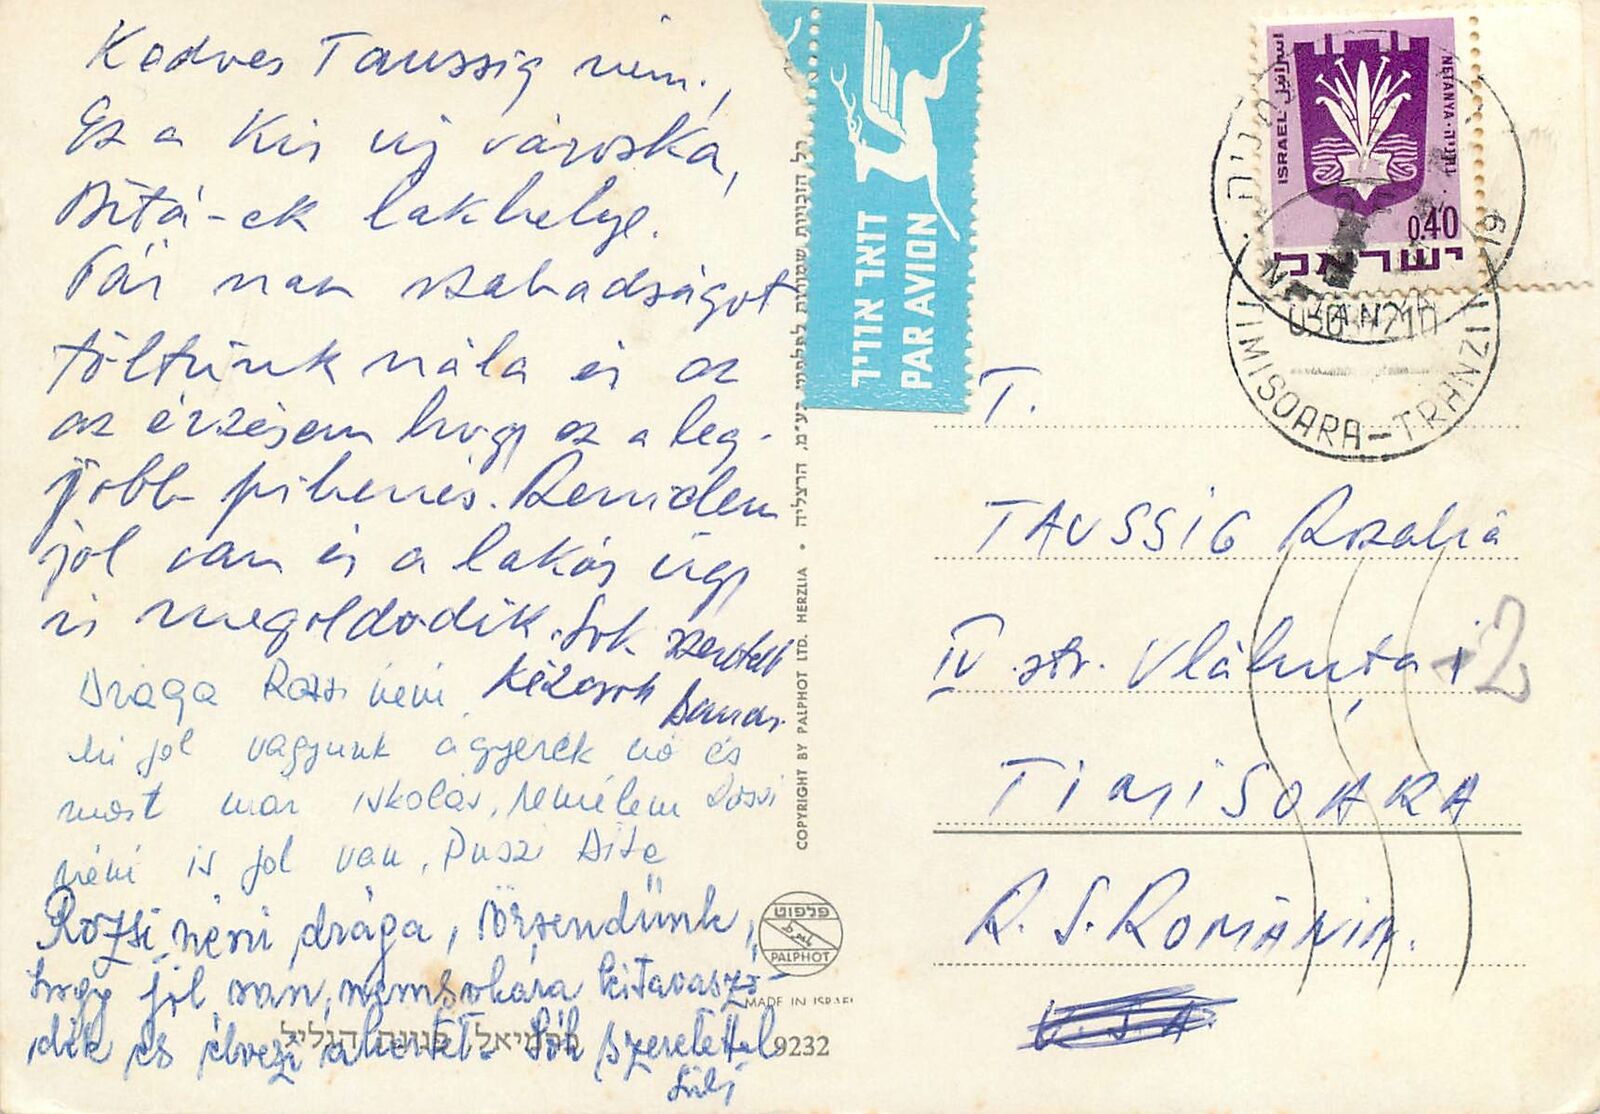 Kedves Taussig néni,
Ez a kis új városka,
Ditá-ék lakhelye.
Pár nap szabadságot
töltünk nála és az
az érzésem hogy ez a leg-
jobb pihenés. Remélem
jól van és a lakás ügy
is megoldódik. Sok szeretettel
kézcsók
Drága Rozsi néni,
mi jól vagyunk a gyerek nő és
most már iskolás, remélem Rozsi
néni is jól van, Puszi Dita
Rozsi néni drága, örvendünk,
hogy jól van, nemsokára kitavaszo-
dik és élvezi a kertet. Sok szeretettel
Lili
דואר אויר
PAR AVION
כל הזכויות שמורות לפלפוט בע״מ, הרצליה • COPYRIGHT BY PALPHOT LTD. HERZLIA
פלפוט
PALPHOT
MADE IN ISRAEL
כרמיאל, פנינת הגליל
9232
ISRAEL اسرائيل
NETANYA נתניה
0.40
ישראל
נתניה
NETANYA
TIMISOARA-TRANZIT
T.
TAUSSIG Rozalia
IV str. Vlahuță 2
TIMISOARA
R. S. ROMÂNIA.
U.S.A.
2